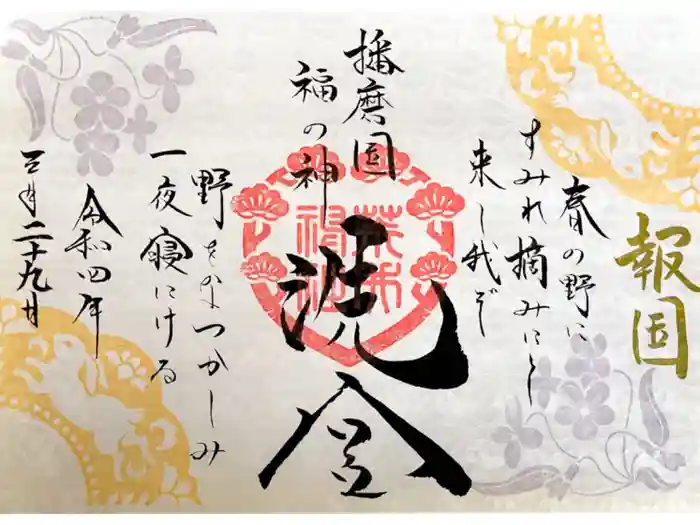 報国
春の野に
すみれ摘みにと
来し我ぞ
播磨国
福の神
野をなつかしみ
一夜寝にける
令和四年
三月二十九日